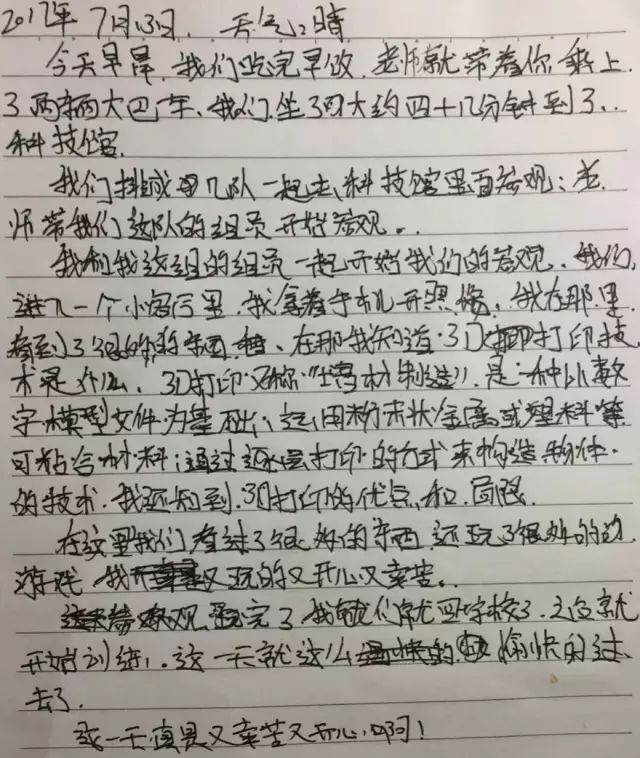 2017年7月13日. 天气:晴
今天早晨,我们吃完早饭,老师就带着你乘上
了两辆大巴车、我们坐了可大约四十几分钟到了..
科技馆.
我们排成几队一起去科技馆里面参观;老
师带我们这队的组员开始参观..
我和我这组的组员一起开始我们的参观..我们,
进入一个小客厅里.我拿着手机开照像.我在那里
看到了很的东西、在那我知道.3D打印技
术是什么、3D打印又称“增材制造”,是一种以数
字模型文件为基础;运用粉末状金属或塑料等
可粘合材料;通过逐层打印的方式来构造物体.
的技术.我还知到.3D打印的优点和局限.
在这里我们看过了很好的东西.还玩了很好的
游戏 我又玩的又开心又辛苦.
观完了我们就回学校了.之后就
开始训练,.这一天就这么愉快的过
去了.
这一天真是又辛苦又开心啊!